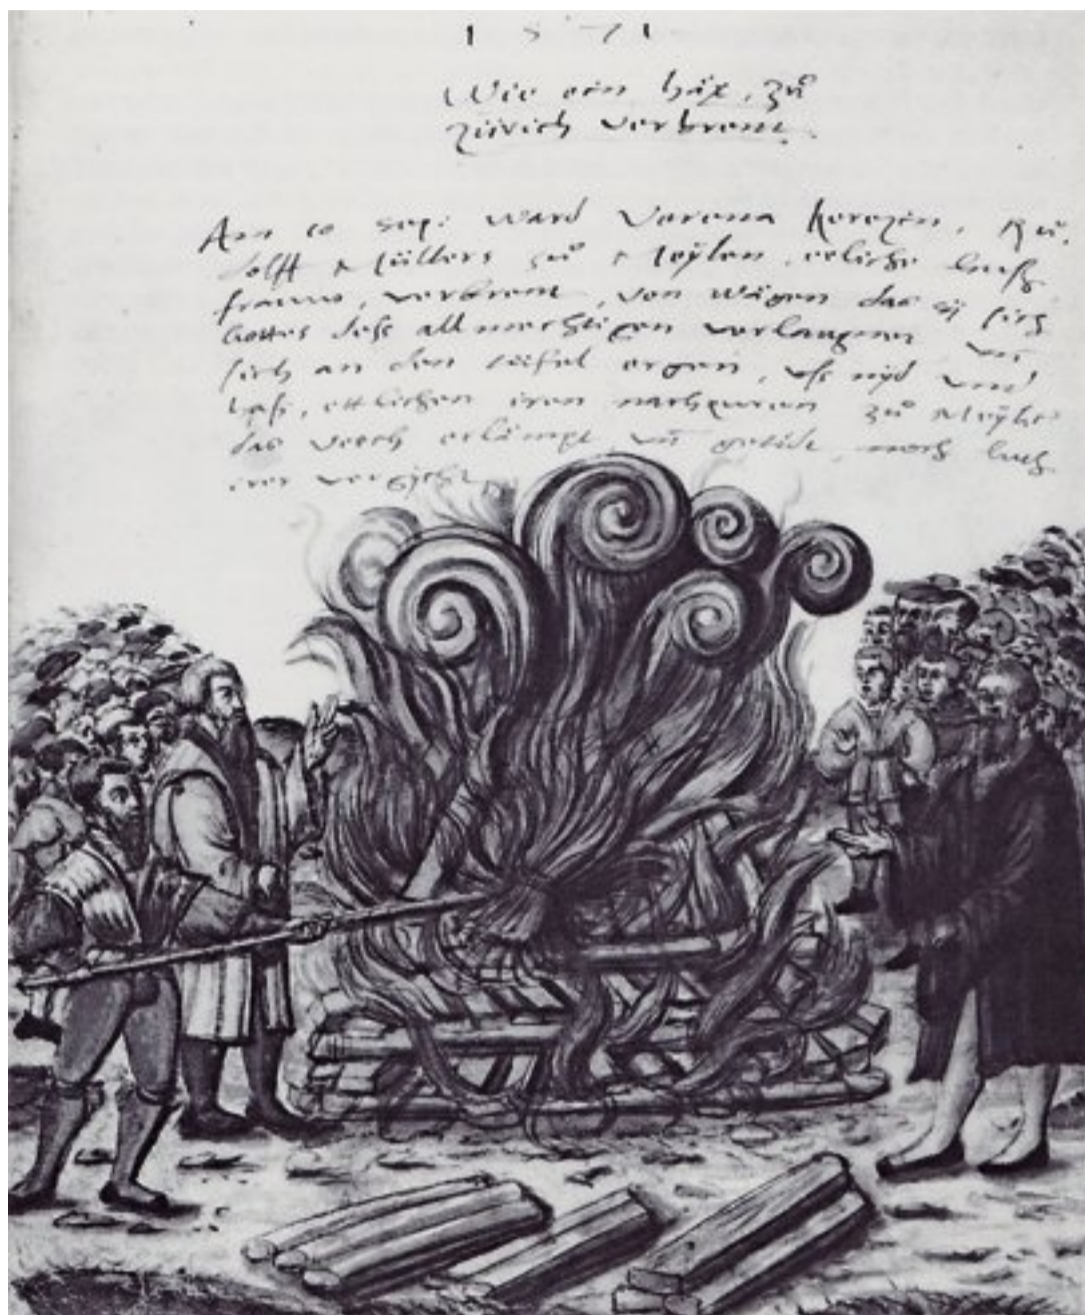 1571
Wie ein häx, zů
zürich verbrent.
Am 10 sep: ward Verena Kerezin, Rů,
dolff Müllers zů Meÿlen, eeliche huß
frauw, verbrent, von wägen das sÿ sich
Gottes deß allmechtigen verlaugnet vñ
sich an den tüfel ergen, uß nÿd und
haß, ettlichen iren nachpuren zů Meÿlen
das veech erlämpt, vñ getödt, nach luth
irer vergicht